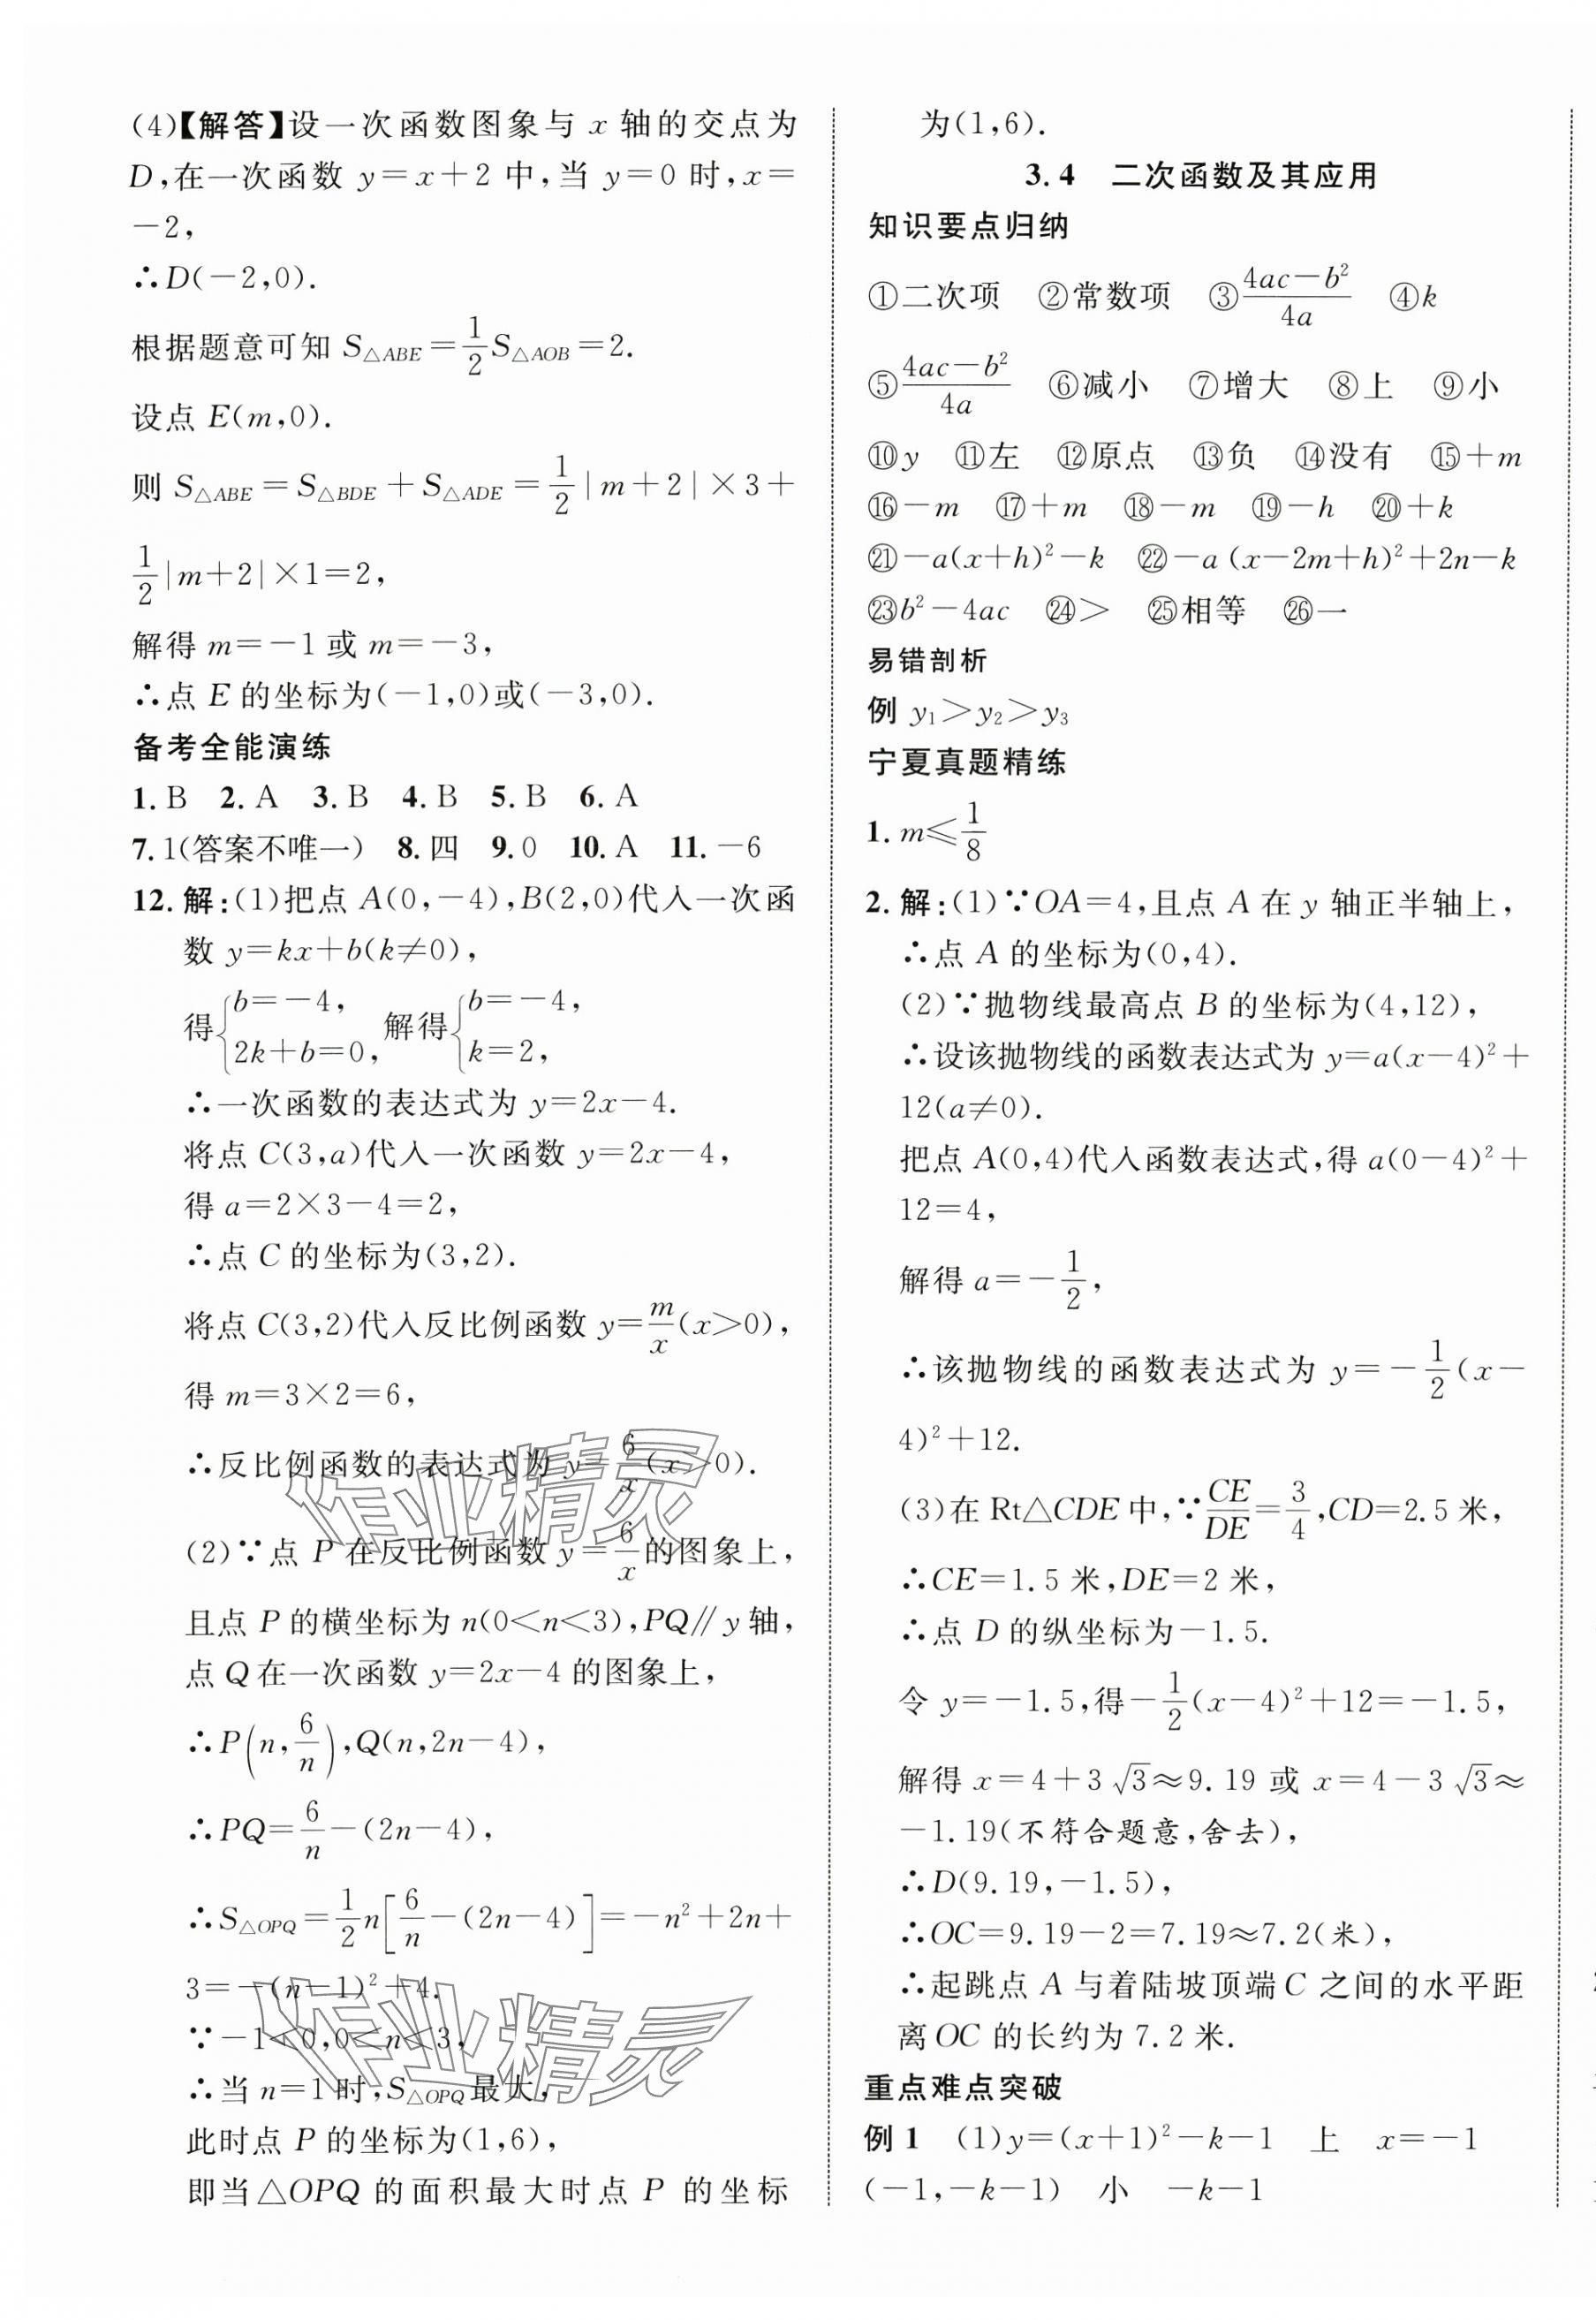 (4)【解答】设一次函数图象与 x 轴的交点为
D,在一次函数 y=x+2 中,当 y=0 时,x=
-2,
∴D(-2,0).
根据题意可知 S△ABE=1/2 S△AOB=2.
设点 E(m,0).
则 S△ABE=S△BDE+S△ADE=1/2|m+2|×3+
1/2|m+2|×1=2,
解得 m=-1 或 m=-3,
∴点 E 的坐标为(-1,0)或(-3,0).
备考全能演练
1.B 2.A 3.B 4.B 5.B 6.A
7.1(答案不唯一) 8.四 9.0 10.A 11.-6
12.解:(1)把点 A(0,-4),B(2,0)代入一次函
数 y=kx+b(k≠0),
得{b=-4, 2k+b=0, 解得{b=-4, k=2,
∴一次函数的表达式为 y=2x-4.
将点 C(3,a)代入一次函数 y=2x-4,
得 a=2×3-4=2,
∴点 C 的坐标为(3,2).
将点 C(3,2)代入反比例函数 y=m/x(x>0),
得 m=3×2=6,
∴反比例函数的表达式为 y=6/x(x>0).
(2)∵点 P 在反比例函数 y=6/x的图象上,
且点 P 的横坐标为 n(0<n<3),PQ∥y 轴,
点 Q 在一次函数 y=2x-4 的图象上,
∴P(n,6/n),Q(n,2n-4),
∴PQ=6/n-(2n-4),
∴S△OPQ=1/2 n[6/n-(2n-4)]=-n²+2n+
3=-(n-1)²+4.
∵-1<0,0<n<3,
∴当 n=1 时,S△OPQ最大,
此时点 P 的坐标为(1,6),
即当△OPQ 的面积最大时点 P 的坐标
为(1,6).
3.4 二次函数及其应用
知识要点归纳
①二次项 ②常数项 ③(4ac-b²)/4a ④k
⑤(4ac-b²)/4a ⑥减小 ⑦增大 ⑧上 ⑨小
⑩y ⑪左 ⑫原点 ⑬负 ⑭没有 ⑮+m
⑯-m ⑰+m ⑱-m ⑲-h ⑳+k
㉑-a(x+h)²-k ㉒-a(x-2m+h)²+2n-k
㉓b²-4ac ㉔> ㉕相等 ㉖一
易错剖析
例 y₁>y₂>y₃
宁夏真题精练
1.m≤1/8
2.解:(1)∵OA=4,且点 A 在 y 轴正半轴上,
∴点 A 的坐标为(0,4).
(2)∵抛物线最高点 B 的坐标为(4,12),
∴设该抛物线的函数表达式为 y=a(x-4)²+
12(a≠0).
把点 A(0,4)代入函数表达式,得 a(0-4)²+
12=4,
解得 a=-1/2,
∴该抛物线的函数表达式为 y=-1/2(x-
4)²+12.
(3)在 Rt△CDE 中,∵CE/DE=3/4,CD=2.5 米,
∴CE=1.5 米,DE=2 米,
∴点 D 的纵坐标为-1.5.
令 y=-1.5,得-1/2(x-4)²+12=-1.5,
解得 x=4+3√3≈9.19 或 x=4-3√3≈
-1.19(不符合题意,舍去),
∴D(9.19,-1.5),
∴OC=9.19-2=7.19≈7.2(米),
∴起跳点 A 与着陆坡顶端 C 之间的水平距
离 OC 的长约为 7.2 米.
重点难点突破
例1 (1)y=(x+1)²-k-1 上 x=-1
(-1,-k-1) 小 -k-1
作业精灵
作业精灵